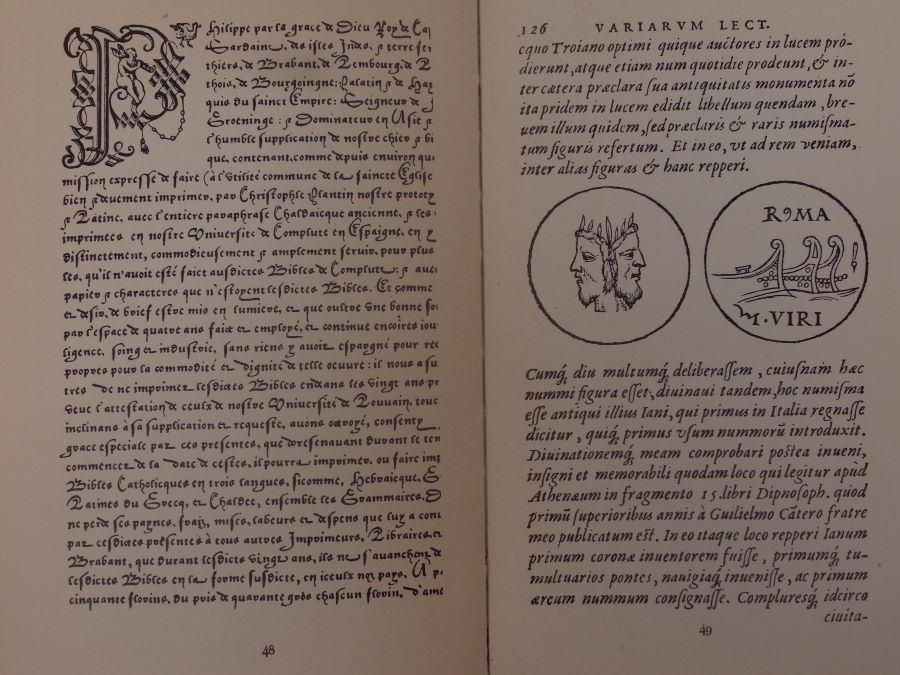 Philippe par la grace de Dieu Roy de Cas
Sardaine, des isles Indes, & terre fer
thiers, de Brabant, de Lembourg, de
thois, de Bourgoingne: Palatin & de Hay
quis du sainct Empire: Seigneur de
Groeninge: & Dominateur en Asie &
l'humble supplication de nostre chier & bi
que, contenant comme depuis environ qua
mission expresse de faire (à l'utilité commune de la saincte Eglise
bien & deuement imprimer, par Christophle Plantin nostre prototy
& Latine, avec l'entiere paraphrase Chaldaicque ancienne, & les
imprimees en nostre Université de Complute en Espaigne, en
distinctement, commodieusement & amplement servir, pour plus
les, qu'il n'avoit esté faict ausdictes Bibles de Complute: & avec
papier & characteres que n'estoyent lesdictes Bibles. Et comme
et desir, de brief estre mis en lumiere, et que oultre une bonne so
par l'espace de quatre ans faict et employé, et continue encoires iou
ligence, soing et industrie, sans riens y avoir espargné pour re
propres pour la commodité et dignité de telle oeuvre: il nous a su
tres de ne imprimer lesdictes Bibles endans les vingt ans pr
veue l'attestation de ceulx de nostre Université de Louvain, touc
inclinans à sa supplication et requeste, avons octroyé, consenty
grace especiale par ces presentes, que doresnavant durant le ter
commencer de la date de cestes, il pourra imprimer, ou faire imp
Bibles Catholicques en trois langues, sicomme, Hebraicque, G
Latines du Grecq, et Chaldee, ensemble les Grammaires, D
ne perde ses paynes, fraiz, mises, labeurs et despens que luy a con
par cesdictes presentes à tous autres Imprimeurs, Libraires
Brabant, que durant lesdicts vingt ans, ils ne s'avancent de
lesdictes Bibles en la forme susdicte, en iceulx noz pays. A p
cinquante florins, du pris de quarante gros chascun florin, d'ame
48
126 VARIARVM LECT.
cquo Troiano optimi quique auctores in lucem pro-
dierunt, atque etiam num quotidie prodeunt, & in-
ter cætera præclara sua antiquitatis monumenta nō
ita pridem in lucem edidit libellum quendam, bre-
uem illum quidem, sed præclaris & raris numisma-
tum figuris refertum. Et in eo, vt ad rem veniam,
inter alias figuras & hanc repperi.
ROMA
M·VIRI
Cumq́; diu multumq́; deliberassem, cuiusnam hæc
nummi figura esset, diuinaui tandem, hoc numisma
esse antiqui illius Iani, qui primus in Italia regnasse
dicitur, quiq́; primus vsum nummorū introduxit.
Diuinationemq́; meam comprobari postea inueni,
insigni et memorabili quodam loco qui legitur apud
Athenæum in fragmento 15. libri Dipnosoph. quod
primū superioribus annis à Guilielmo Cātero fratre
meo publicatum est. In eo itaque loco repperi Ianum
primum coronæ inuentorem fuisse, primumq́; tu-
multuarios pontes, nauigiaq́; inuenisse, ac primum
æreum nummum consignasse. Compluresq́; idcirco
ciuita-
49